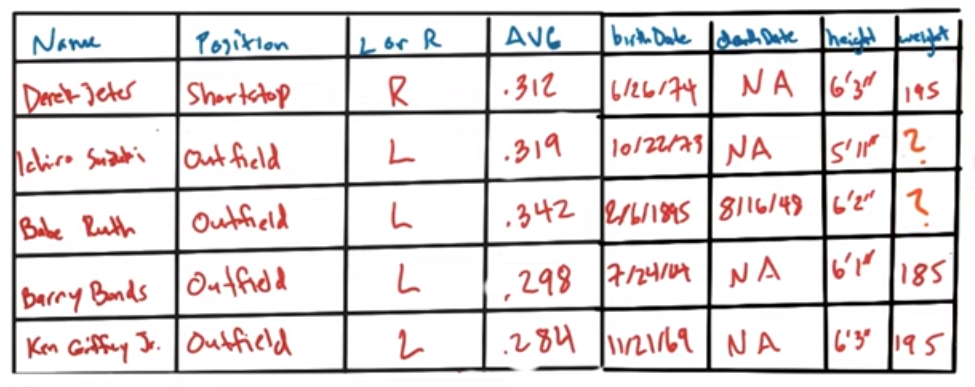 Name Position L or R AVG birthDate deathDate height weight
Derek Jeter Shortstop R .312 6/26/74 NA 6'3" 195
Ichiro Suzuki Outfield L .319 10/22/73 NA 5'11" ?
Babe Ruth Outfield L .342 2/6/1895 8/16/48 6'2" ?
Barry Bonds Outfield L .298 7/24/64 NA 6'1" 185
Ken Griffey Jr. Outfield L .284 11/21/69 NA 6'3" 195